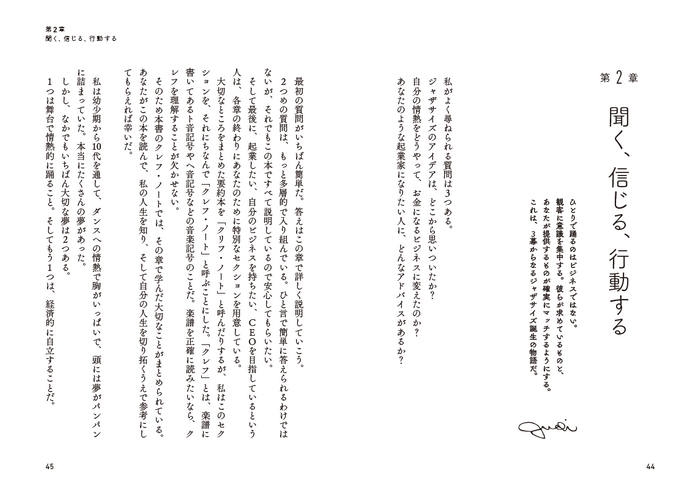 第2章
聞く、信じる、行動する
ひとりで踊るのはビジネスではない。
観客に意識を集中する。彼らが求めているものと、
あなたが提供するものが確実にマッチするようにする。
これは、3幕からなるジャザサイズ誕生の物語だ。
私がよく尋ねられる質問は3つある。
ジャザサイズのアイデアは、どこから思いついたか?
自分の情熱をどうやって、お金になるビジネスに変えたのか?
あなたのような起業家になりたい人に、どんなアドバイスがあるか?
44
第2章
聞く、信じる、行動する
最初の質問がいちばん簡単だ。答えはこの章で詳しく説明していこう。
2つめの質問は、もっと多層的で入り組んでいる。ひと言で簡単に答えられるわけでは
ないが、それでもこの本ですべて説明しているので安心してもらいたい。
そして最後に、起業したい、自分のビジネスを持ちたい、CEOを目指しているという
人は、各章の終わりにあなたのために特別なセクションを用意している。
大切なところをまとめた要約本を「クリフ・ノート」と呼んだりするが、私はこのセク
ションを、それにちなんで「クレフ・ノート」と呼ぶことにした。「クレフ」とは、楽譜に
書いてあるト音記号やヘ音記号などの音楽記号のことだ。楽譜を正確に読みたいなら、ク
レフを理解することが欠かせない。
そのため本書のクレフ・ノートでは、その章で学んだ大切なことがまとめられている。
あなたがこの本を読んで、私の人生を知り、そして自分の人生を切り拓くうえで参考にし
てもらえれば幸いだ。
私は幼少期から10代を通して、ダンスへの情熱で胸がいっぱいで、頭には夢がパンパン
に詰まっていた。本当にたくさんの夢があった。
しかし、なかでもいちばん大切な夢は2つある。
1つは舞台で情熱的に踊ること。そしてもう1つは、経済的に自立することだ。
45